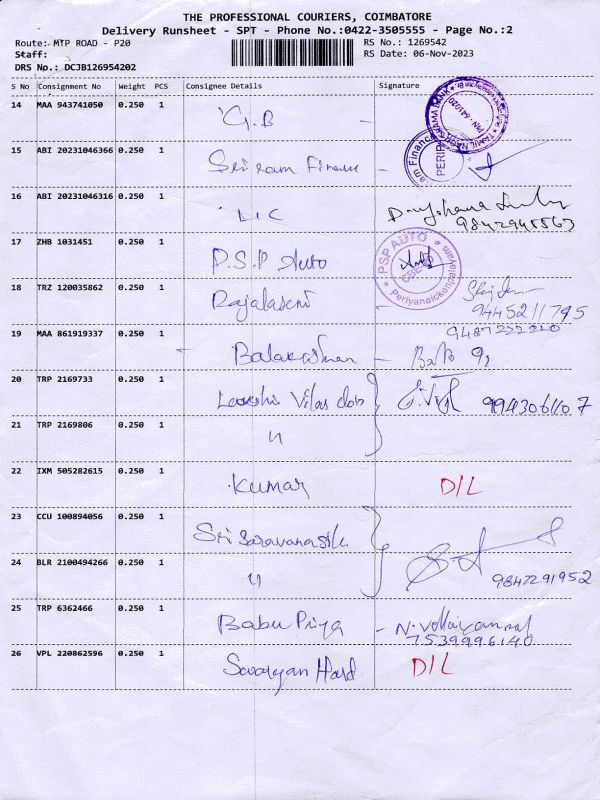 THE PROFESSIONAL COURIERS, COIMBATORE
Delivery Runsheet - SPT - Phone No.:0422-3505555 - Page No.:2
Route: MTP ROAD - P20 RS No.: 1269542
Staff: RS Date: 06-Nov-2023
DRS No.: DCJB126954202
S No Consignment No Weight PCS Consignee Details Signature
14 MAA 943741050 0.250 1 G.B -
15 ABI 20231046366 0.250 1 Sri ram Finance -
16 ABI 20231046316 0.250 1 LIC
9842945563
17 ZHB 1031451 0.250 1 P.S.P Auto
PSP AUTO
Periyanaickenpalayam
18 TRZ 120035862 0.250 1 Rajalaxmi
9445211795
19 MAA 861919337 0.250 1 - Balakrishnan -
9487222020
20 TRP 2169733 0.250 1 Vilas 9943061107
21 TRP 2169806 0.250 1 "
22 IXM 505282615 0.250 1 Kumar D/L
23 CCU 100894056 0.250 1
24 BLR 2100494266 0.250 1 "
9842291952
25 TRP 6362466 0.250 1 Babu Priya -
7539996140
26 VPL 220862596 0.250 1 D/L